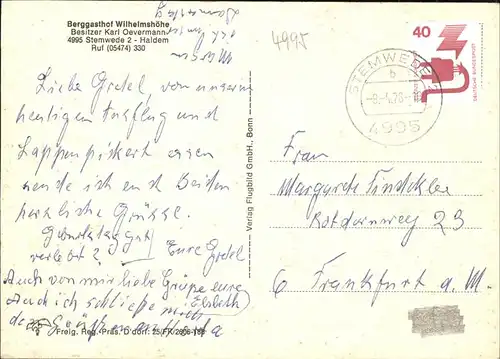 Berggasthof Wilhelmshöhe
Besitzer Karl Oevermann
4995 Stemwede 2 - Haldem
Ruf (05474) 330
4995
40
DEUTSCHE BUNDESPOST
STEMWEDE
b
4995
Liebe Gretel, von unserem
heutigen Ausflug und
Lappenpickert essen
sende ich euch Beiden
herzliche Grüsse.
Geburtstag gut
verlebt?
Eure Gretel
Auch von mir liebe Grüße eure
Elsbeth
Auch ich schließe mich
Verlag Flugbild GmbH., Bonn
Frau
Margarete
23
6 Frankfurt a. M.
Freig. Reg.-Präs. D'dorf: 25/FK/2906-168